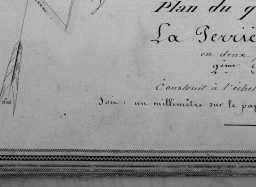 Plan du q
La Perriè
en deux
2ème
Construit à l'échel
Soit : un millimètre sur le pap